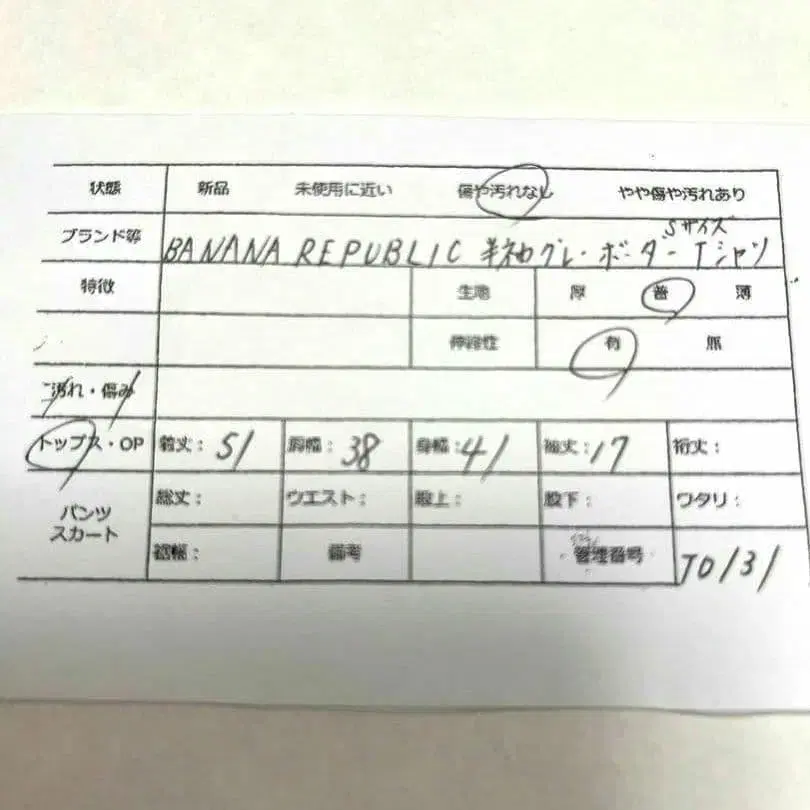 状態 新品 未使用に近い 傷や汚れなし やや傷や汚れあり
Sサイズ
ブランド等 BANANA REPUBLIC 半袖グレーボーダーTシャツ
特徴 生地 厚 普 薄
伸縮性 有 無
汚れ・傷み
トップス・OP 着丈: 51 肩幅: 38 身幅: 41 袖丈: 17 裄丈:
パンツ 総丈: ウエスト: 股上: 股下: ワタリ:
スカート
裾幅: 備考 管理番号 TO131